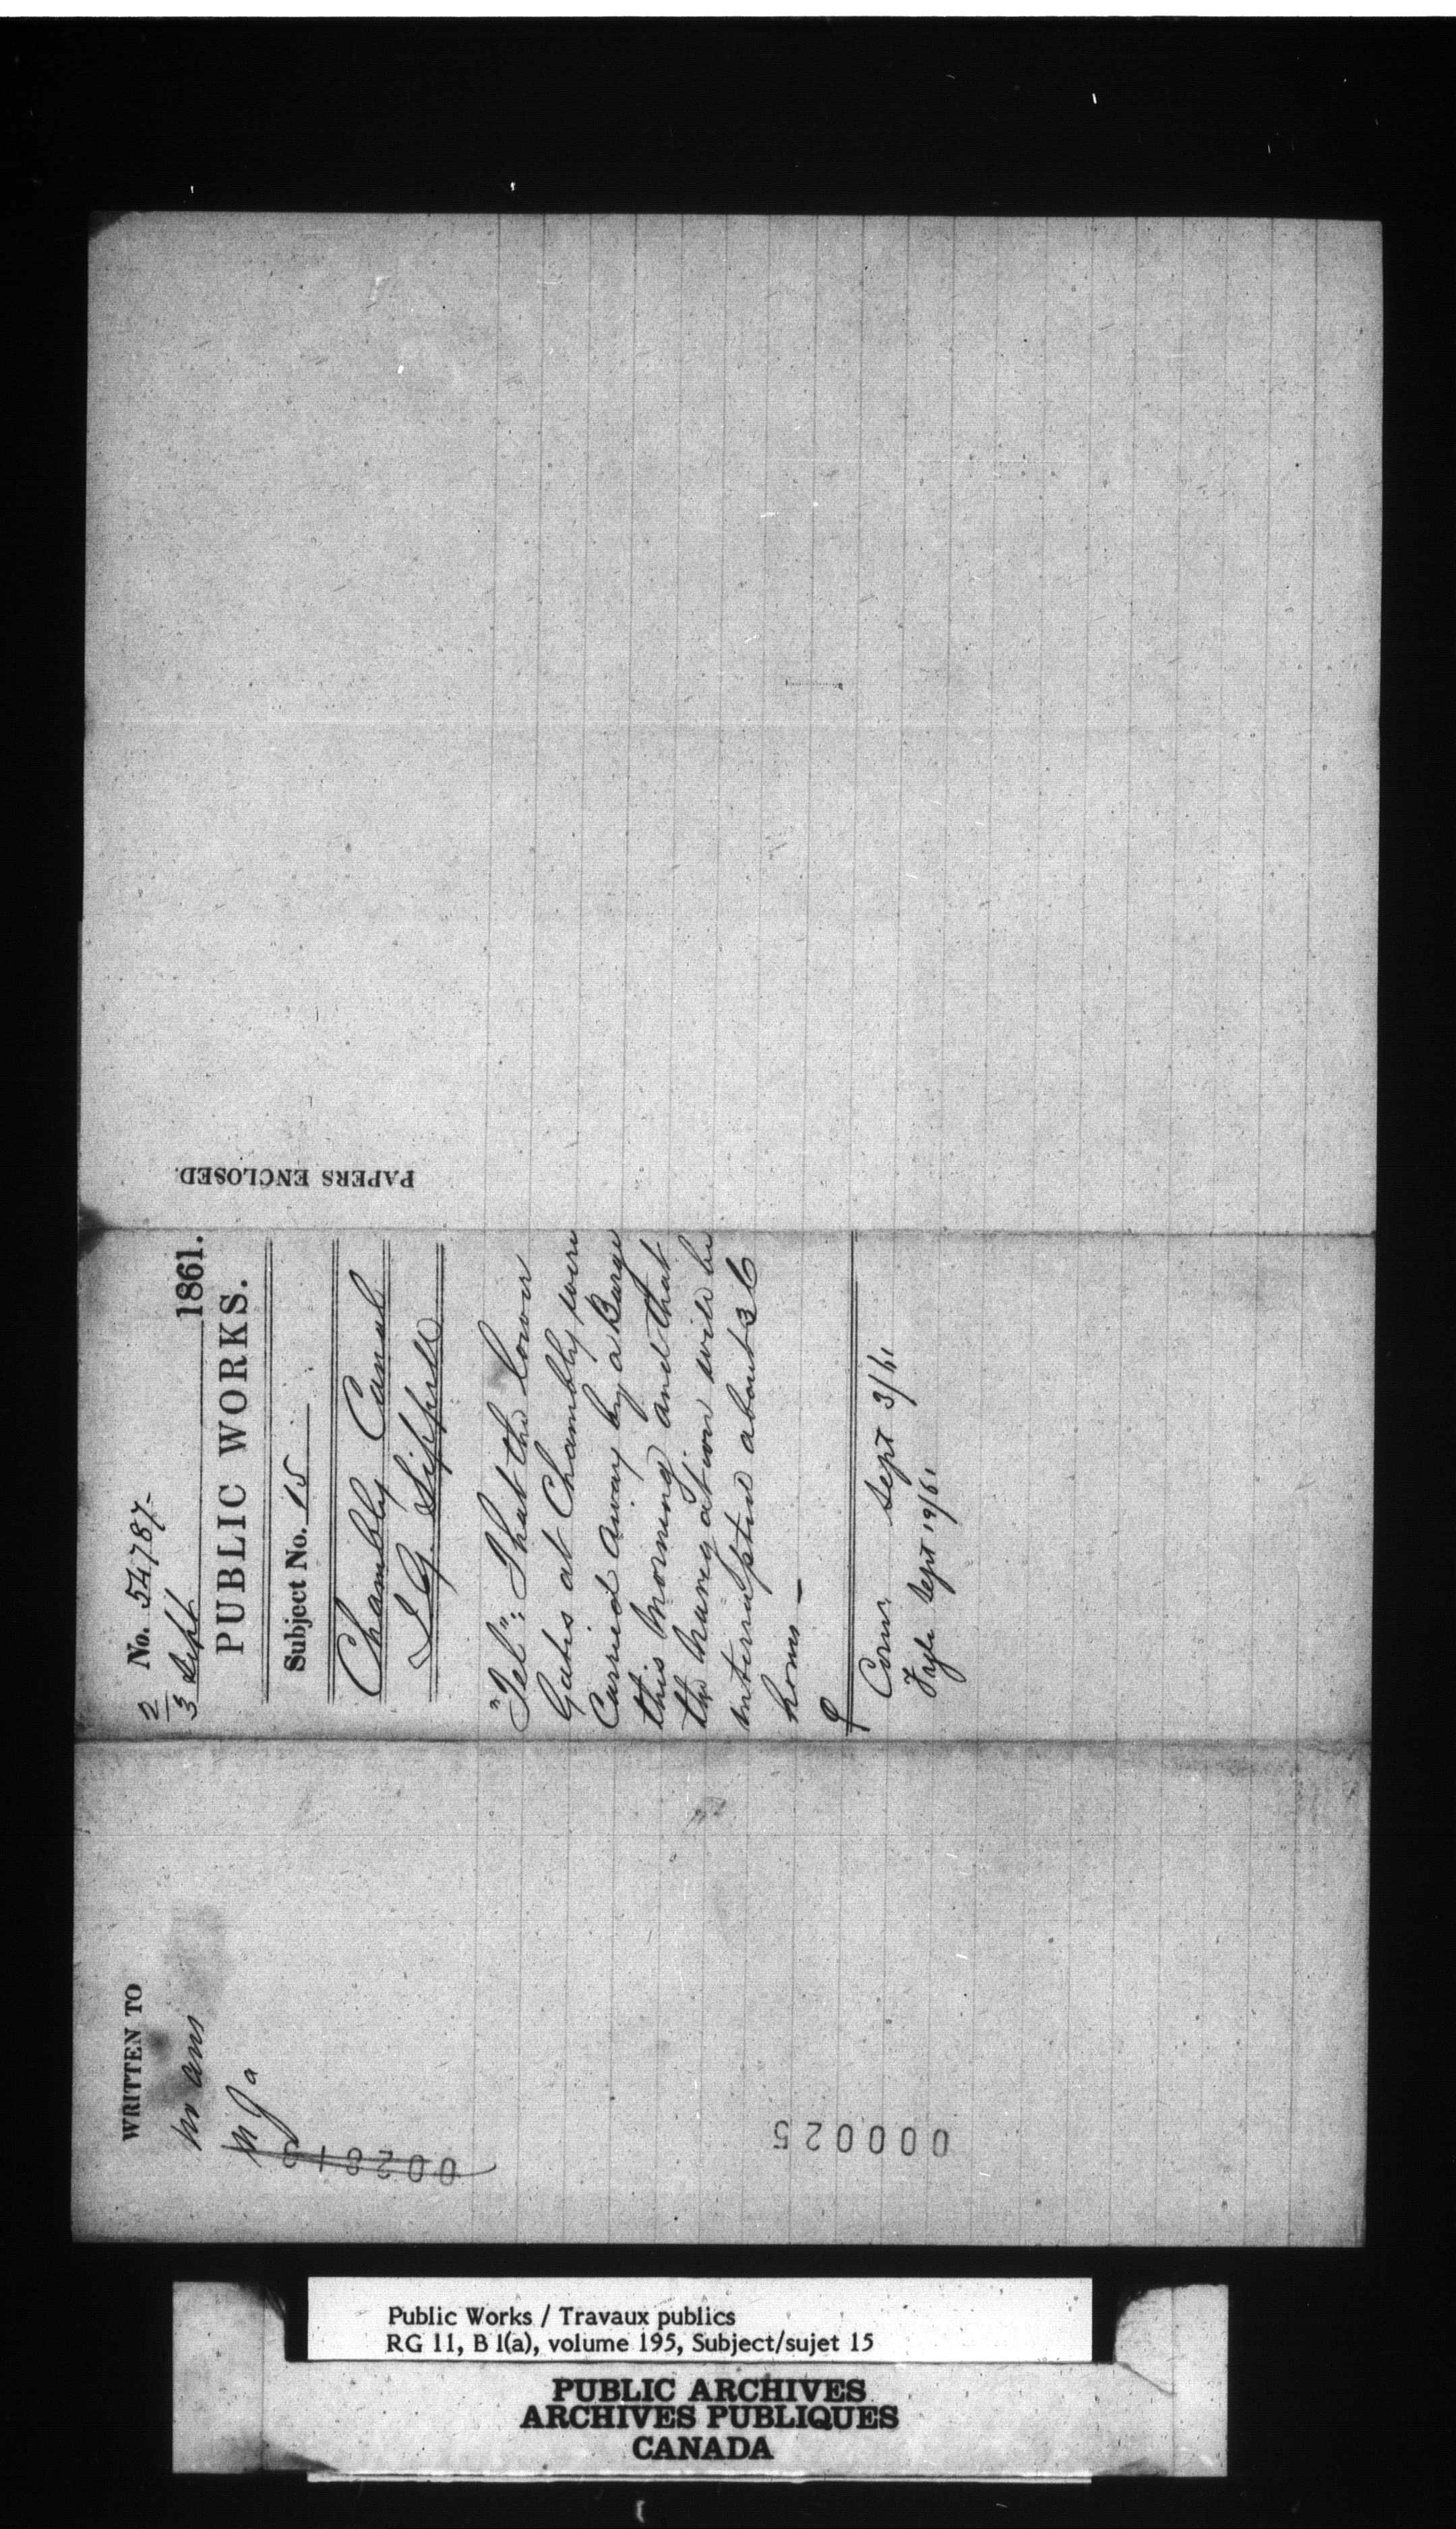 PAPERS ENCLOSED.
No. 54787-
2/3 Sept 1861.
PUBLIC WORKS.
Subject No. 15
Chambly Canal
Sippell
"Tel": That the lower
Gates at Chambly were
Carried away by a Barge
this Morning and that
the Navigation will be
interrupted about 36
hours –
Comr Sept 3/61
Sept 19/61
WRITTEN TO
no ans
002813
000025
Public Works / Travaux publics
RG 11, B 1(a), volume 195, Subject/sujet 15
PUBLIC ARCHIVES
ARCHIVES PUBLIQUES
CANADA